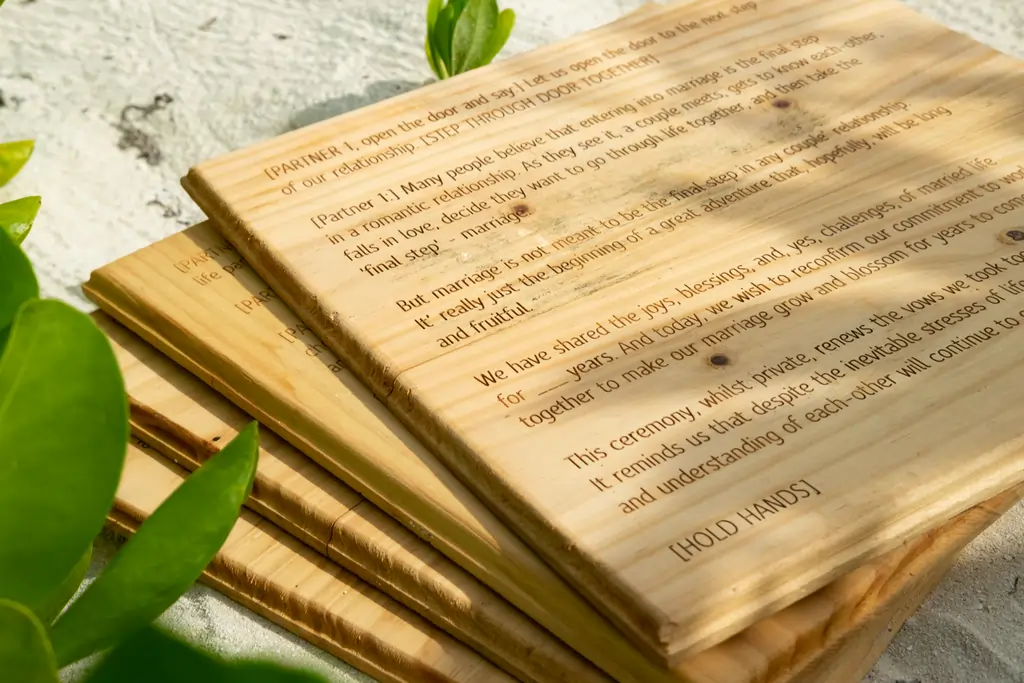 [PARTNER 1, open the door and say] Let us open the door to the next step
of our relationship. [STEP THROUGH DOOR TOGETHER]
[Partner 1:] Many people believe that entering into marriage is the final step
in a romantic relationship. As they see it, a couple meets, gets to know each-other,
falls in love, decide they want to go through life together, and then take the
'final step' - marriage.
But marriage is not meant to be the final step in any couples' relationship
It' really just the beginning of a great adventure that, hopefully, will be long
and fruitful.
We have shared the joys, blessings, and, yes, challenges, of married life
for ___ years. And today, we wish to reconfirm our commitment to
together to make our marriage grow and blossom for years to
This ceremony, whilst private, renews the vows we took
It reminds us that despite the inevitable stresses of
and understanding of each-other will continue to
[HOLD HANDS]
[PAR
life
[PAR
[PA